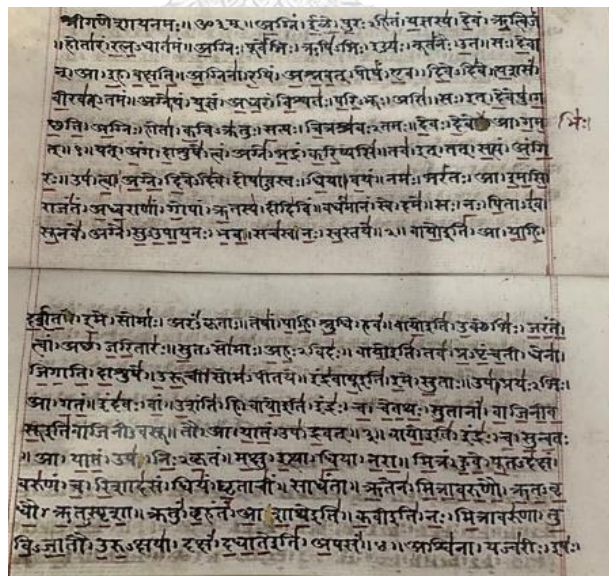 श्रीगणेशायनमः॥ॐ३म्॥अग्निं।ईळे।पुरःऽहितं।यज्ञस्य।देवं।ऋत्विजं
॥होतारं।रत्नऽधातमं॥अग्निः।पूर्वेभिः।ऋषिऽभिः।ईड्यः।नूतनैः।उत॥सः।देवा
न्।आ।इह।वक्षति॥अग्निना।रयिं।अश्नवत्।पोषं।एव।दिवेऽदिवे॥यशसं
वीरवत्ऽतमं॥अग्ने।यं।यज्ञं।अध्वरं।विश्वतः।परिऽभूः।असि॥सः।इत्।देवेषु।ग
च्छति॥अग्निः।होता।कविऽक्रतुः।सत्यः।चित्रश्रवःऽतमः॥देवः।देवे आ।गम
भिः।
त्॥१॥यत्।अंग।दाशुषे।त्वं।अग्ने।भद्रं।करिष्यसि॥तव।इत्।तत्।सत्यं।अंगि
रः॥उप।त्वा।अग्ने।दिवेऽदिवे।दोषाऽवस्तः।धिया।वयं॥नमः।भरंतः।आ।इमसि॥
राजंतं।अध्वराणां।गोपां।ऋतस्य।दीदिविं॥वर्धमानं।स्वे।दमे॥सः।नः।पिताऽइव
सूनवे।अग्ने।सुऽउपायनः।भव॥सचस्व।नः।स्वस्तये॥२॥वायोइति।आ।याहि।
दर्शत।इमे।सोमाः।अरंऽकृताः॥तेषां।पाहि।श्रुधि।हवं॥वायोइति।उक्थेभिः।जरंते।
त्वां।अच्छ।जरितारः॥सुतऽसोमाः।अहःऽविदः॥वायोइति।तव।प्रऽपृंचती।धेना।
जिगाति।दाशुषे॥उरूची।सोमऽपीतये॥इंद्रवायूइति।इमे।सुताः॥उप।प्रयःऽभिः।
आ।गतं॥इंदवः।वां।उशंति।हि॥वायोइति।इंद्रः।च।चेतथः।सुतानां।वाजिनीव
सूइतिवाजिनीऽवसू॥तौ।आ।यातं।उप।द्रवत्॥३॥वायोइति।इंद्रः।च।सुन्वतः
॥आ।यातं।उप।निःऽकृतं॥मक्षु।इत्था।धिया।नरा॥मित्रं।हुवे।पूतऽदक्षं।
वरुणं।च।रिशादसं॥धियं।घृताचीं॥साधंता॥ऋतेन।मित्रावरुणौ।ऋतऽवृ
धौ।ऋतऽस्पृशा॥क्रतुं।बृहंतं।आ शाथेइति॥कवीइति।नः।मित्रावरुणा।तु
विऽजातौ।उरुऽक्षया॥दक्षं।दधातेइति।अपसं॥४॥अश्विना।यज्वरीः।इषः।